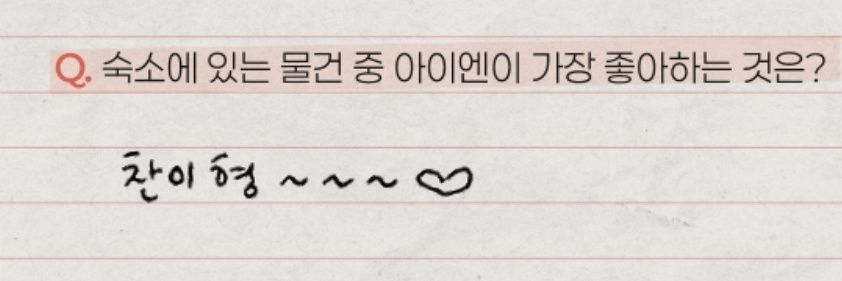 Q. 숙소에 있는 물건 중 아이엔이 가장 좋아하는 것은?
찬이 형 ~ ~ ~ ♡